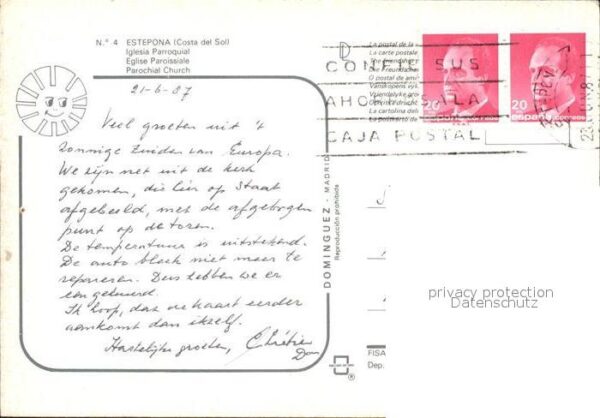 N.º 4 ESTEPONA (Costa del Sol)
Iglesia Parroquial
Eglise Paroissiale
Parochial Church
21-6-87
Veel groeten uit 't
zonnige Zuiden van Europa.
We zijn net uit de kerk
gekomen, die hier op staat
afgebeeld, met de afgebogen
punt op de toren.
De temperatuur is uitstekend.
De auto bleek niet meer te
repareren. Dus hebben we er
een gehuurd.
Ik hoop, dat de kaart eerder
aankomt dan ikzelf.
Hartelijke groeten, Chrétien
DOMINGUEZ - MADRID
Reproducción prohibida
CONFIE SUS
AHORROS A LA
CAJA POSTAL
20
españa correos
20
españa correos
La postal de la
La carte postale
Der Freundschaf
O postal da ami
Vriendelijke gro
La cartolina del
privacy protection
Datenschutz
FISA
Dep.